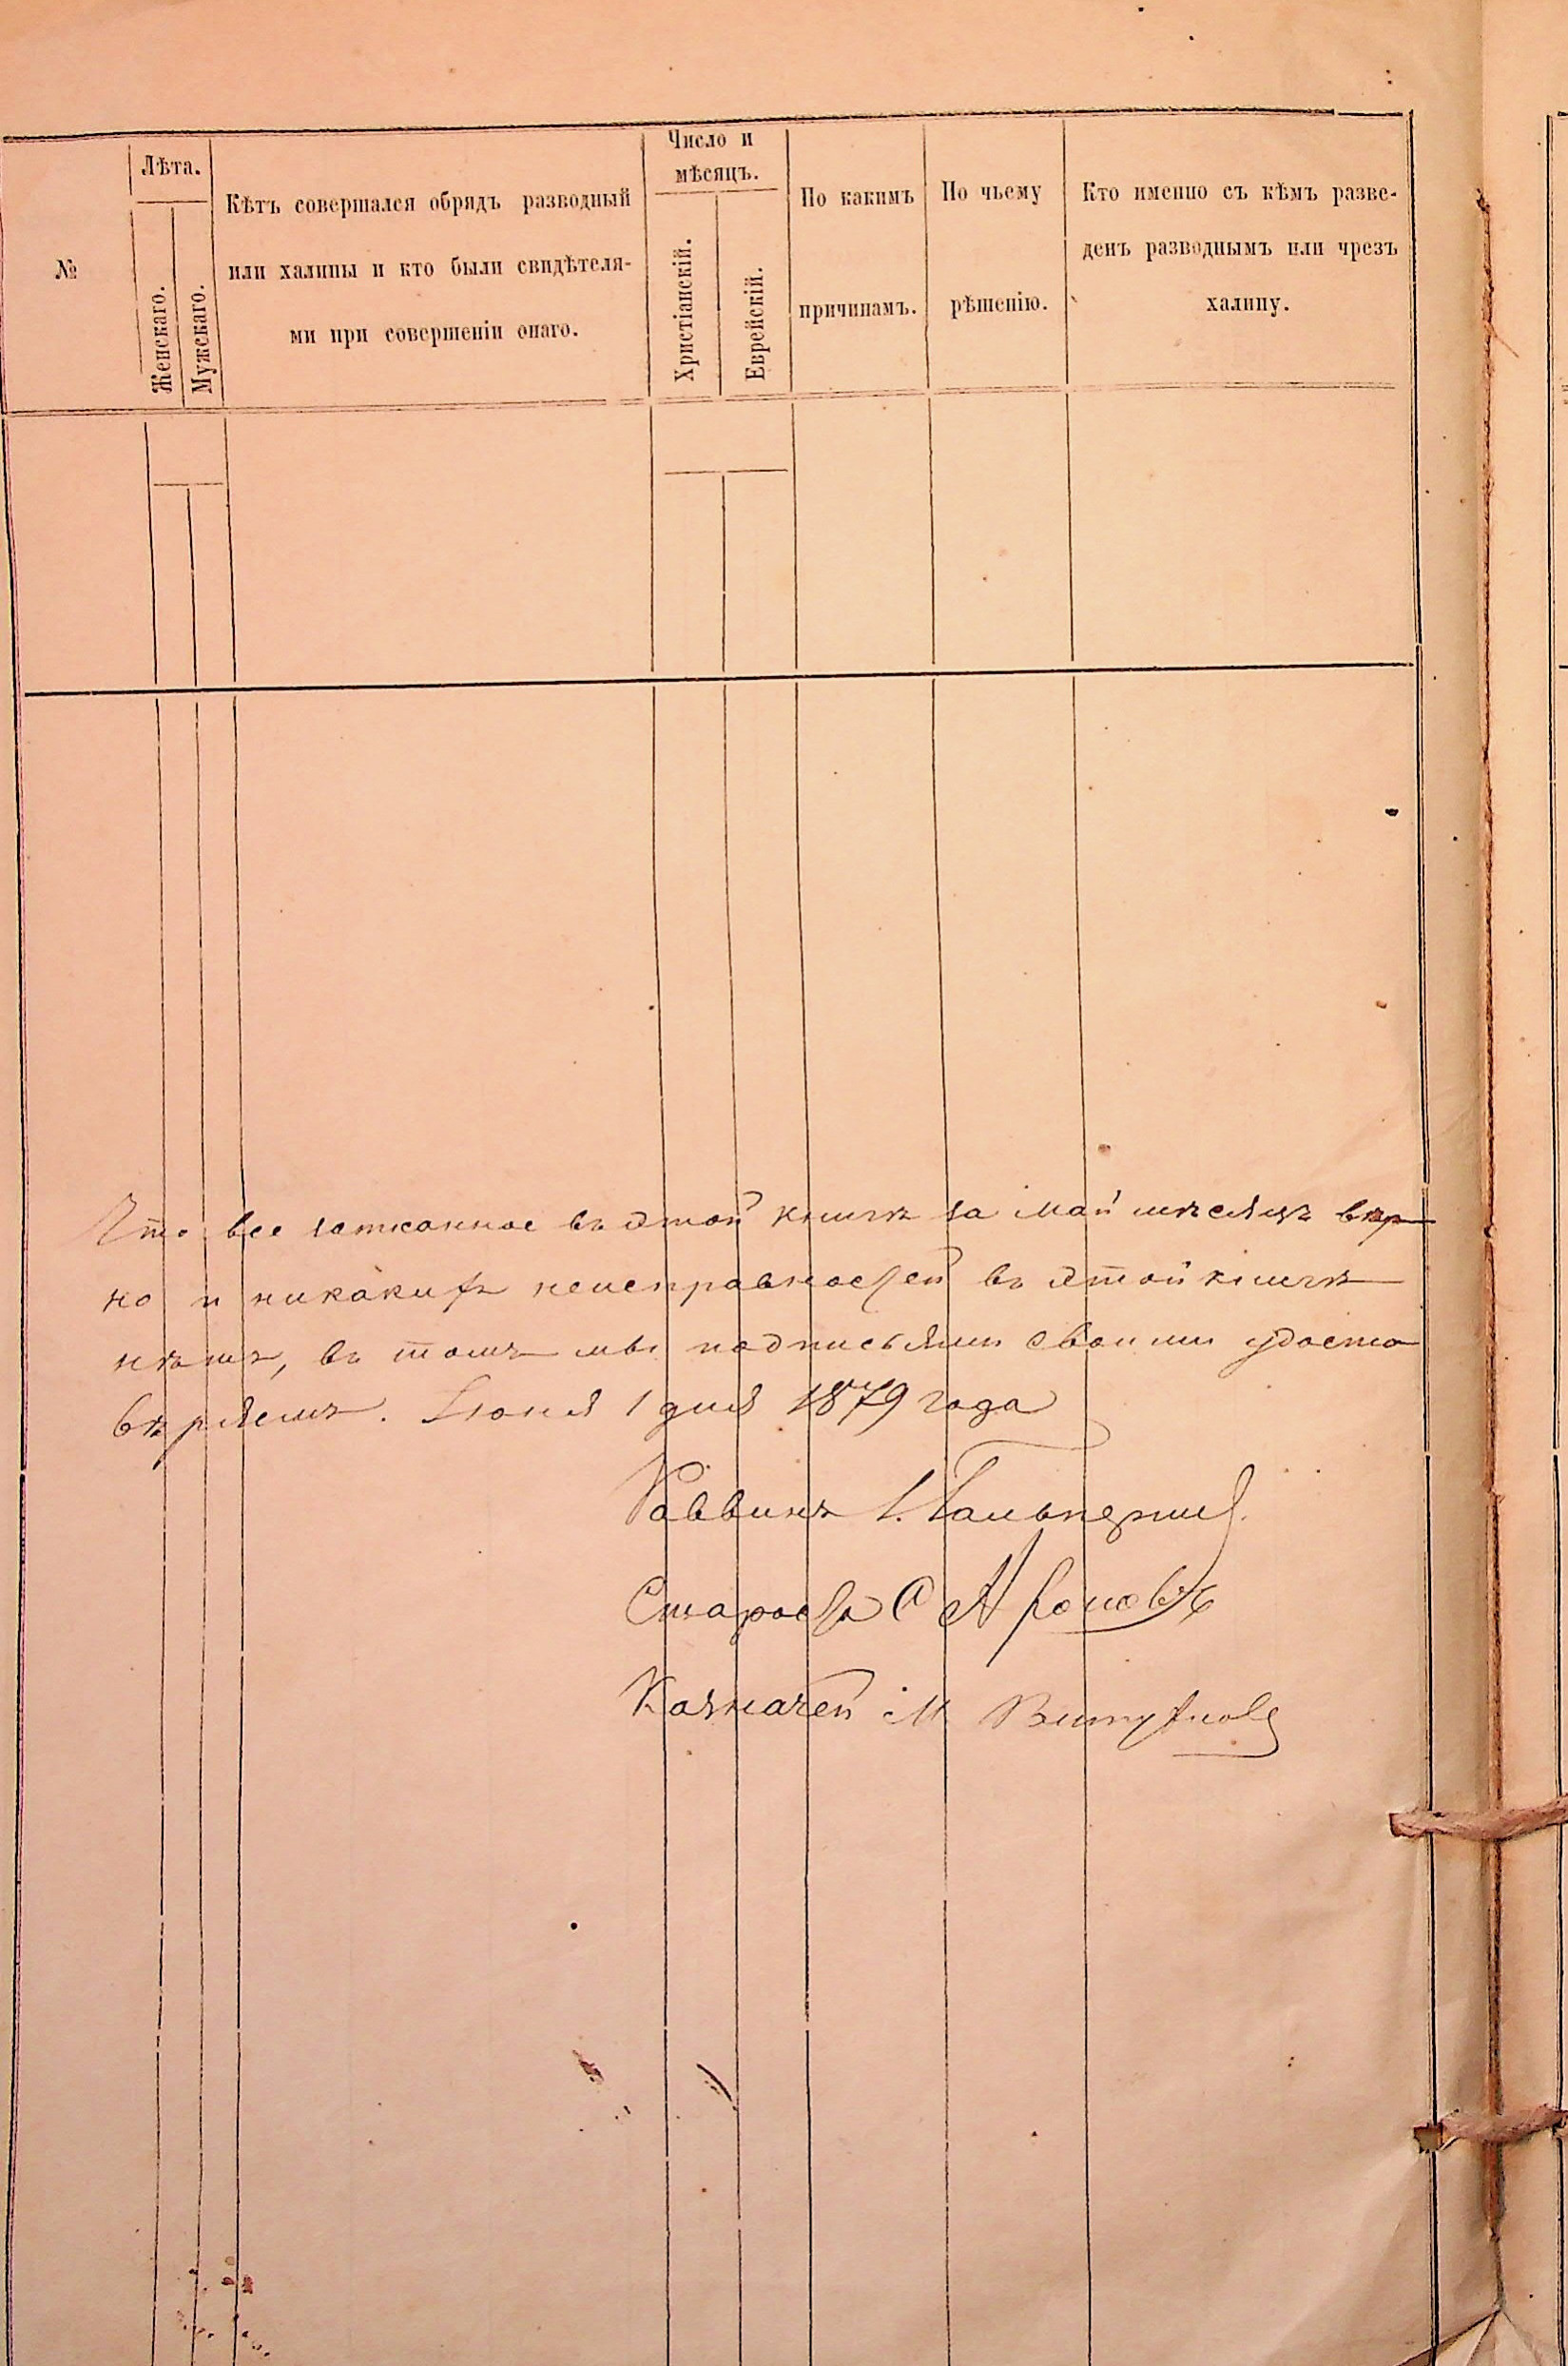 №
Лѣта.
Женскаго.
Мужскаго.
Кѣтъ совершался обрядъ разводный
или халицы и кто были свидѣтеля-
ми при совершеніи онаго.
Число и
мѣсяцъ.
Христіанскій.
Еврейскій.
По какимъ
причинамъ.
По чьему
рѣшенію.
Кто именно съ кѣмъ разве-
денъ разводнымъ или чрезъ
халицу.
Что все въ этой книгѣ за май мѣсяцъ вѣр
но и никакихъ неисправностей въ этой книгѣ
нѣтъ, въ томъ мы подписьями своими удосто
вѣряемъ. Іюня 1 дня 1879 года
Раввинъ І. Гальперин
Староста А Ароновъ
Казначей М